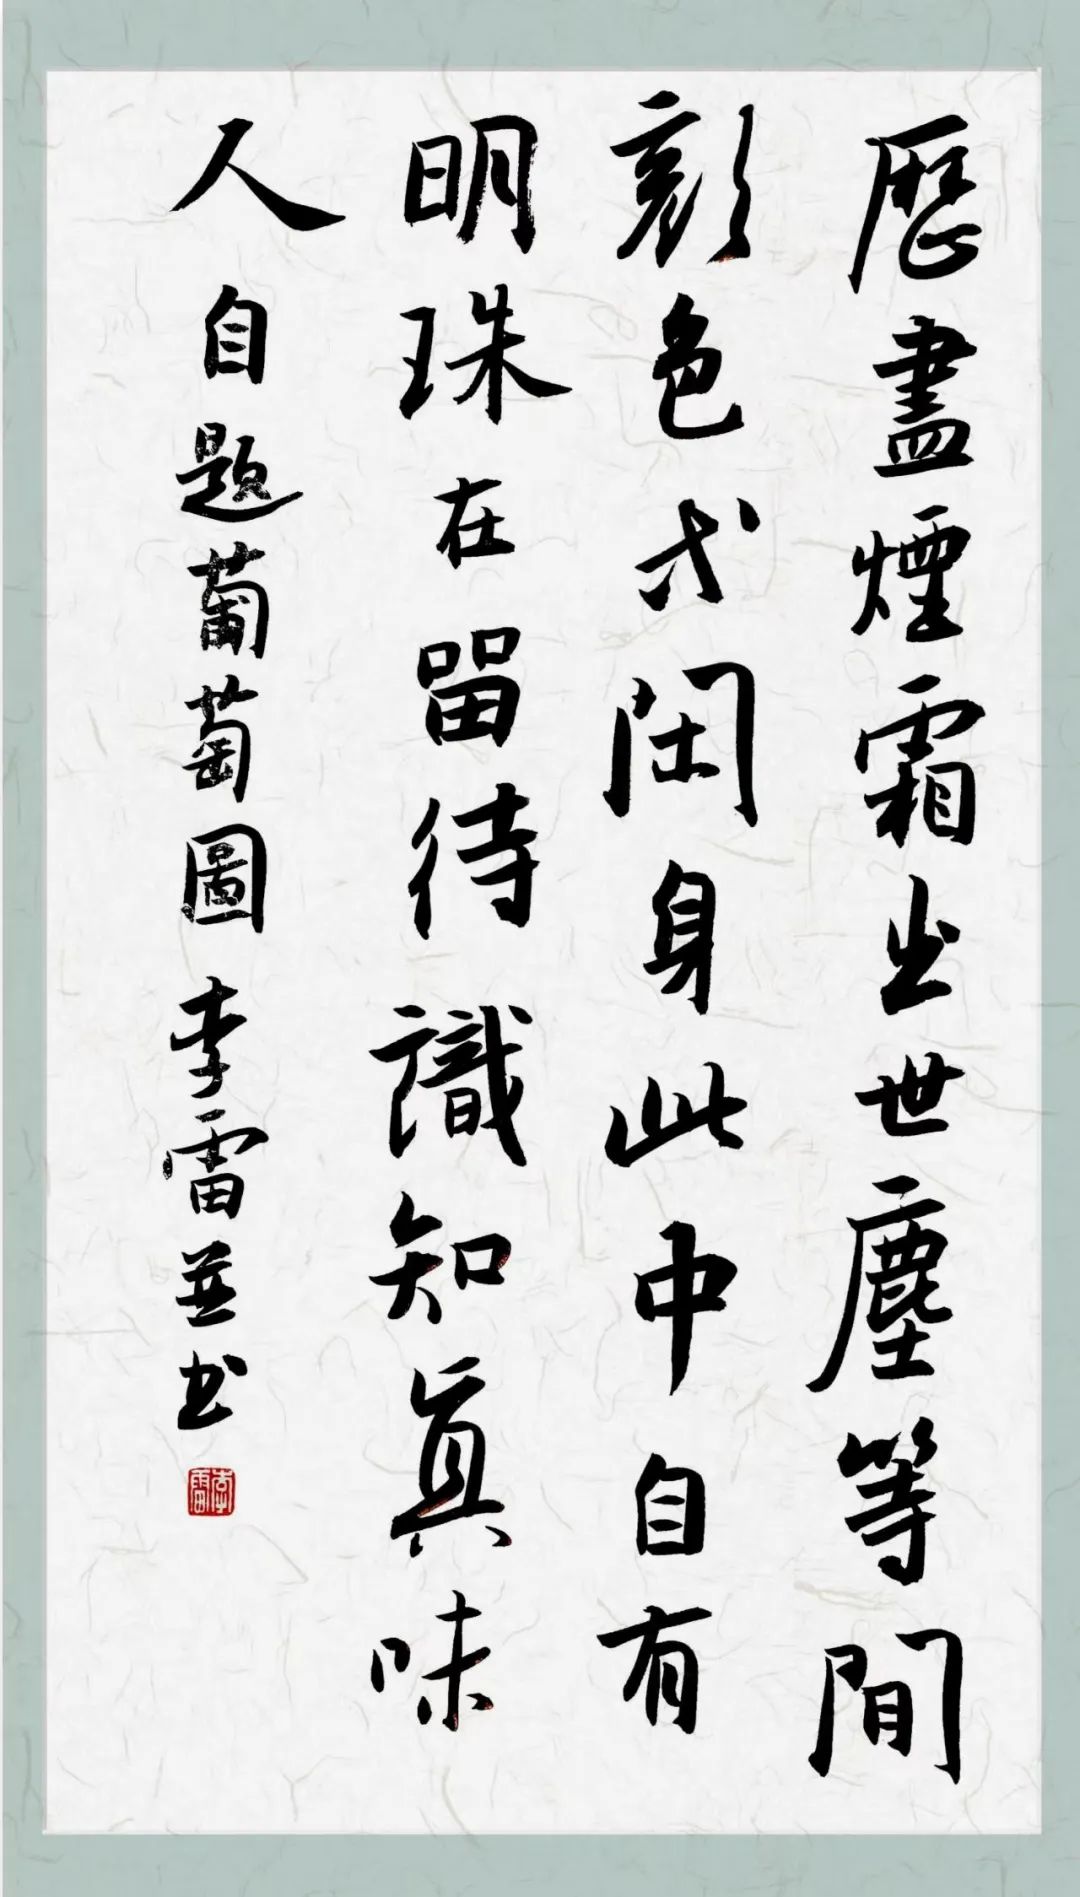 歷盡煙霜出世塵等間
顏色等閑身此中自有
明珠在留待識知真味
人 自題葡萄圖 李雷並书
李雷